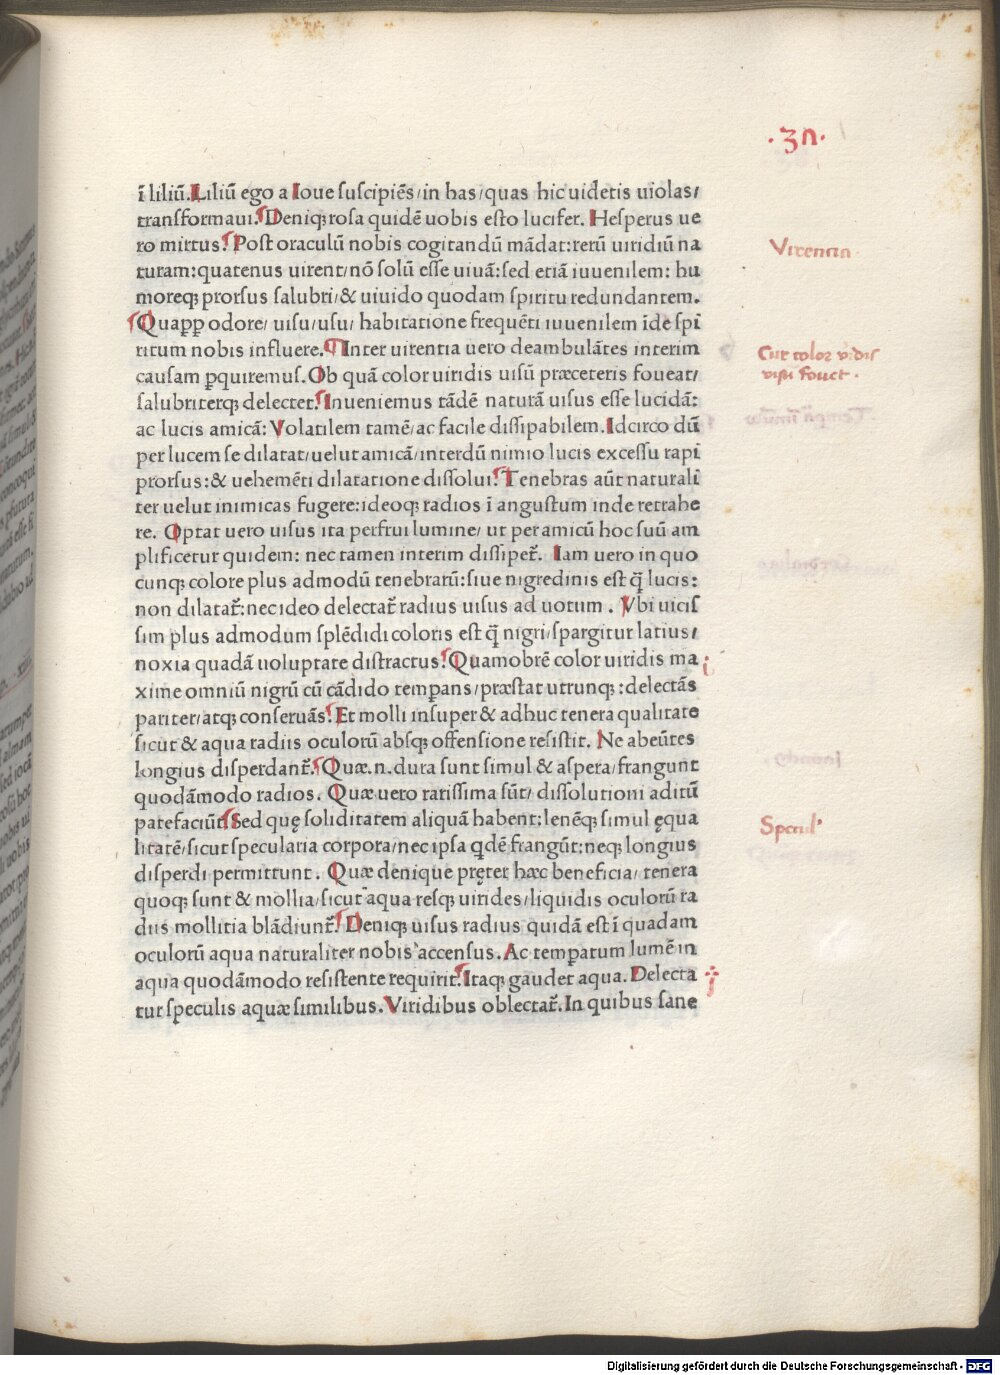 ·37·
ī liliū. Liliū ego a Ioue suscipiēs/in has/quas hic uidetis uiolas/
transformaui. Deniq; rosa quidē uobis esto lucifer. Hesperus ue
ro mirtus. Post oraculū nobis cogitandū mādat: rerū uiridiū na
Virentia
turam: quatenus uirent/nō solū esse uiuā: sed etiā iuuenilem: hu
moreq; prorsus salubri/& uiuido quodam spiritu redundantem.
Quapp odore/ uisu/usu/ habitatione frequēti iuuenilem īde spi
ritum nobis influere. Inter uirentia uero deambulātes interim
Cur color viridis
visū fouet.
causam pquiremus. Ob quā color uiridis uisū præceteris foueat/
salubriterq; delectet. Inueniemus tādē naturā uisus esse lucidā:
ac lucis amicā: Volatilem tamē/ac facile dissipabilem. Idcirco dū
per lucem se dilatat/uelut amicā/interdū nimio lucis excessu rapi
prorsus: & uehemēti dilatatione dissolui. Tenebras aūt naturali
ter uelut inimicas fugere: ideoq; radios ī angustum inde retrahe
re. Optat uero uisus ita perfrui lumine/ ut per amicū hoc suū am
plificetur quidem: nec tamen interim dissipet̄. Iam uero in quo
cunq; colore plus admodū tenebrarū: siue nigredinis est q̄ lucis:
non dilatat̄: nec ideo delectat̄ radius uisus ad uotum. Vbi uicis
sim plus admodum splēdidi coloris est q̄ nigri/spargitur latius/
noxia quadā uoluptate distractus. Quamobrē color uiridis ma
xime omniū nigrū cū cādido temperans/præstat utrunq;: delectās
pariter/atq; conseruās. Et molli insuper & adhuc tenera qualitate
sicut & aqua radiis oculorū absq; offensione resistit. Ne abeūtes
longius disperdant̄. Quæ.n. dura sunt simul & aspera/frangunt
quodāmodo radios. Quæ uero rarissima sūt/dissolutioni aditū
patefaciūt. Sed quę soliditatem aliquā habent: lenēq; simul ęqua
Specul'
litatē/sicut specularia corpora/nec ipsa qdē frangūt: neq; longius
disperdi permittunt. Quæ denique pręter hæc beneficia/ tenera
quoq; sunt & mollia/sicut aqua resq; uirides/liquidis oculorū ra
diis mollitia blādiunt̄. Deniq; uisus radius quidā est ī quadam
oculorū aqua naturaliter nobis accensus. Ac temperatum lumē in
aqua quodāmodo resistente requirit. Itaq; gaudet aqua. Delecta
tur speculis aquæ similibus. Viridibus oblectat̄. In quibus sane
Digitalisierung gefördert durch die Deutsche Forschungsgemeinschaft - DFG